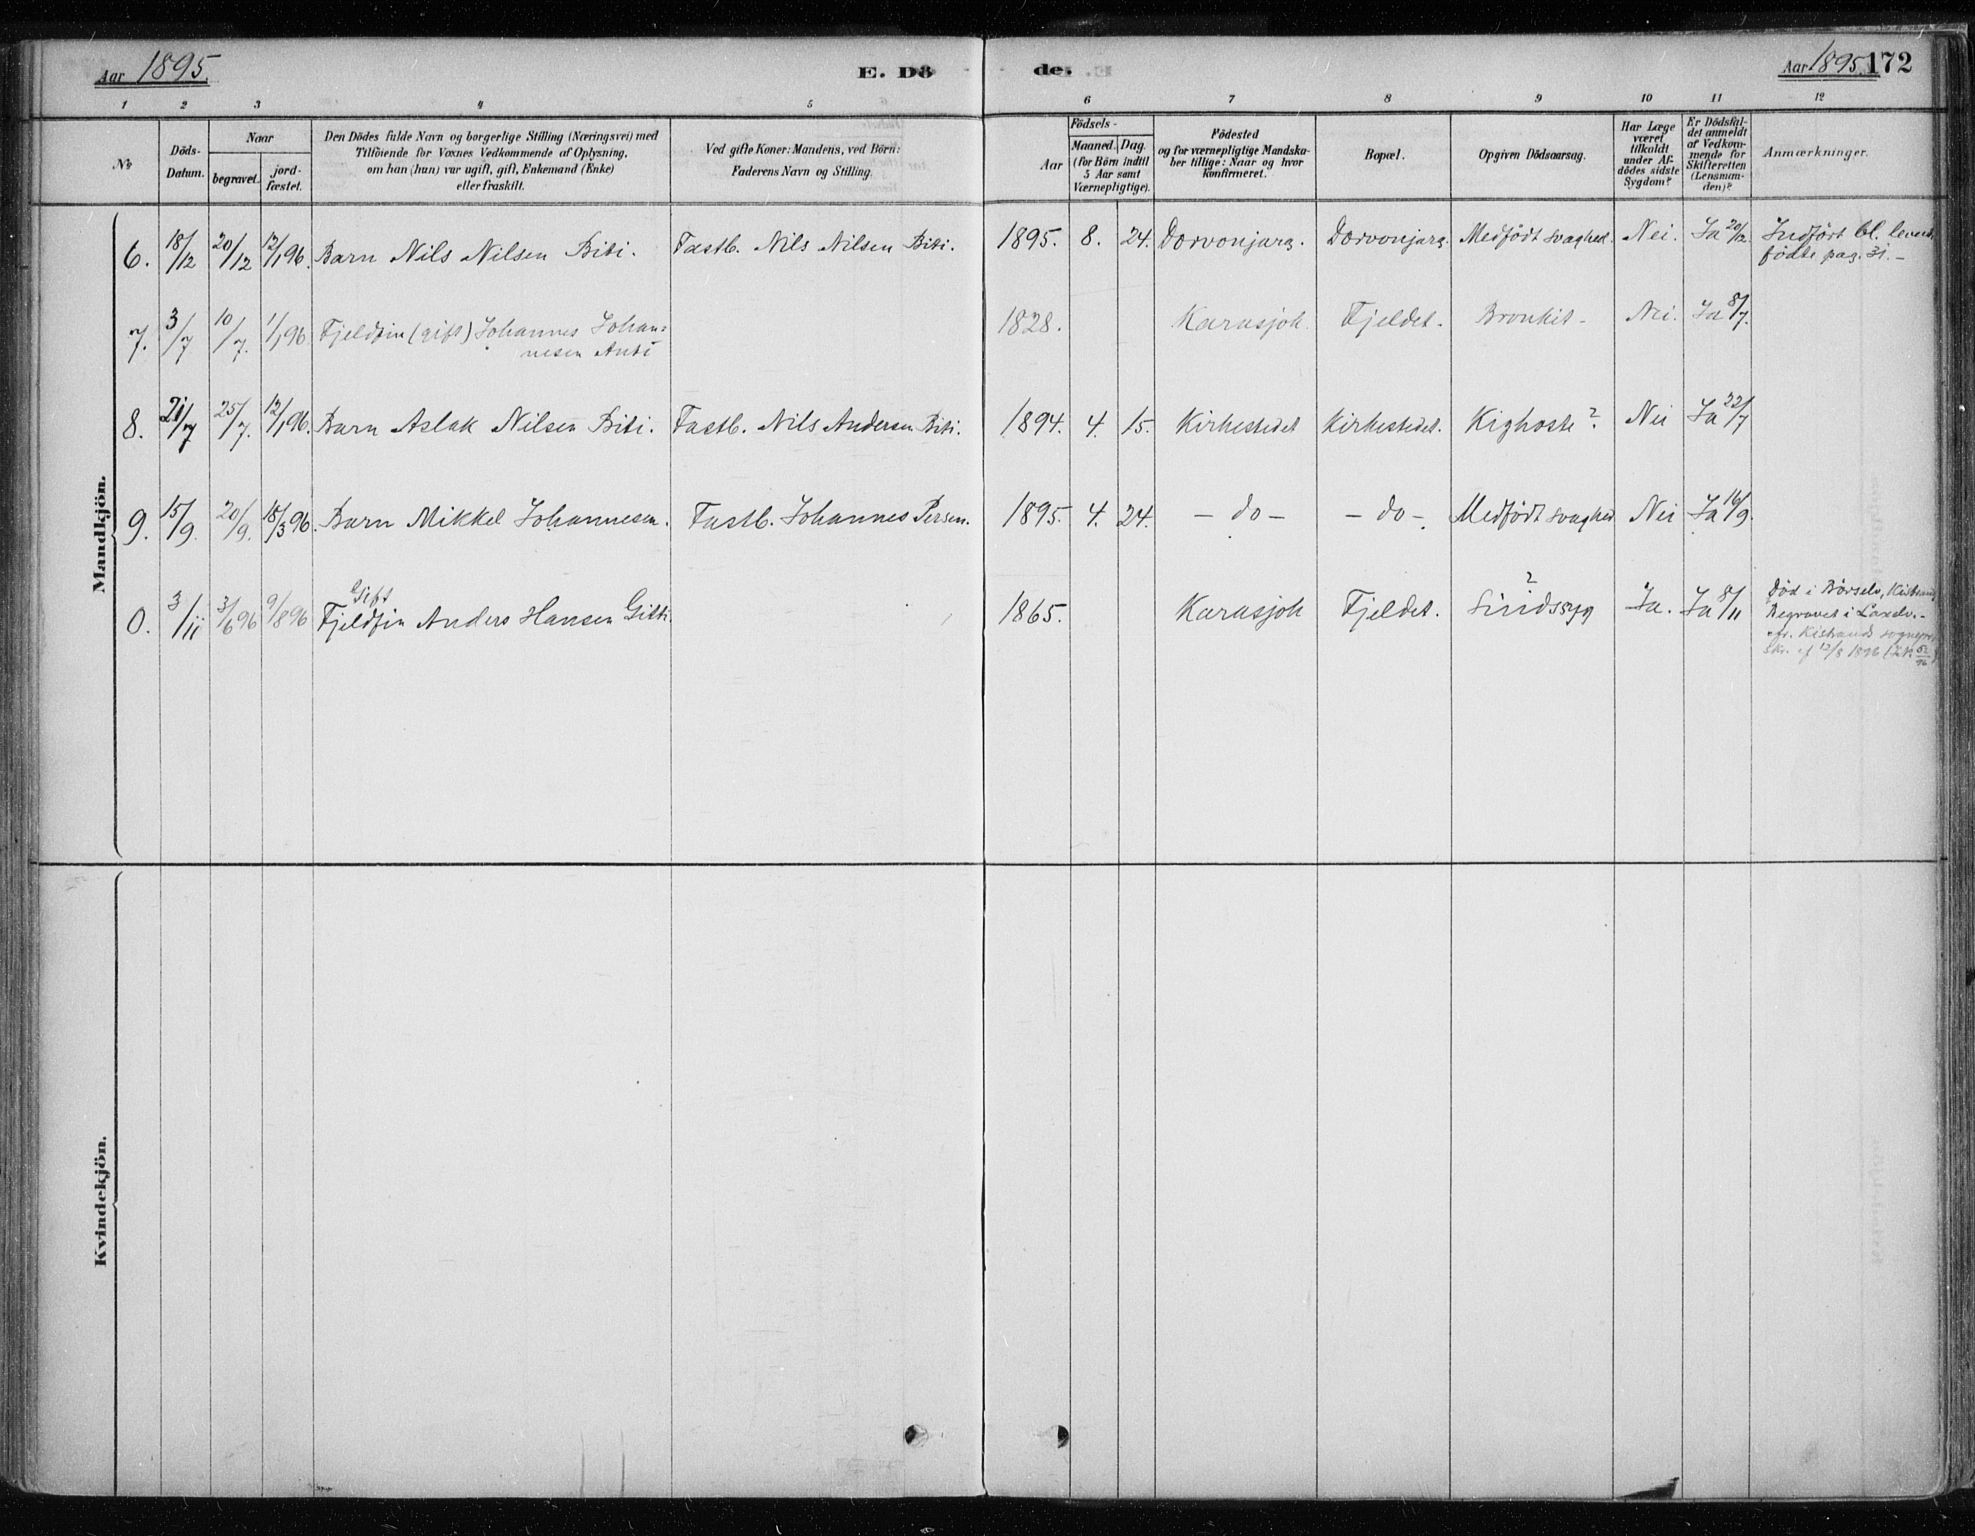 Aar 1895. E. Dö de. Aar 1895. 172
1 2 3 4 5 6 7 8 9 10 11 12
No
Döds-Datum.
Naar
begravet.
jord-fæstet.
Den Dödes fulde Navn og borgerlige Stilling (Næringsvei) med
Tilföiende for Voxnes Vedkommende af Oplysning,
om han (hun) var ugift, gift, Enkemand (Enke)
eller fraskilt.
Ved gifte Koner: Mandens, ved Börn:
Faderens Navn og Stilling.
Födsels-
Aar
Maaned. Dag.
(for Börn indtil
5 Aar samt
Værnepligtige).
Födested
og for værnepligtige Mandska-
ber tillige: Naar og hvor
Konfirmeret.
Bopæl.
Opgiven Dödsaarsag.
Har Læge
været
tilkaldt
under Af-
dödes sidste
Sygdom?
Er Dödsfal-
det anmeldt
af Vedkom-
mende for
Skifteretten
(Lensman-
den)?
Anmærkninger.
Mandkjön.
6. 18/12 20/12 12/1 96. Barn Nils Nilsen Biti. Fastb. Nils Nilsen Biti. 1895. 8. 24. Dorvonjarg. Dorvonjarg. Medfödt svaghed. Nei. Ja 20/12. Indfört bl. levend.
födte pag. 31. –
7. 3/7 10/7. 1/1 96 Fjeldfin (gift) Johannes Johan= 1828. Karasjok. Fjeldet. Bronkit – Nei. Ja 8/7.
nesen Anti
8. 21/7 25/7. 12/1 96. Barn Aslak Nilsen Biti. Fastb. Nils Andersen Biti. 1894. 4. 15. Kirkestedet Kirkestedet. Kighoste? Nei Ja 22/7
9. 15/9. 20/9. 18/3 96. Barn Mikkel Johannesen. Fastb. Johannes Persen. 1895. 4. 24. – do – – do –. Medfödt svaghed Nei Ja 16/9.
Gift
0. 3/11 3/6 96 9/8 96 Fjeldfin Anders Hansen Gitti. 1865. Karasjok Fjeldet. Sindssyg ? Ja. Ja 8/11
Död i Börselv, Kistrand,
Begravet i Laxelv. –
cfr. Kistrands sognepr.
skr. af 12/8 1896
Kvindekjön.